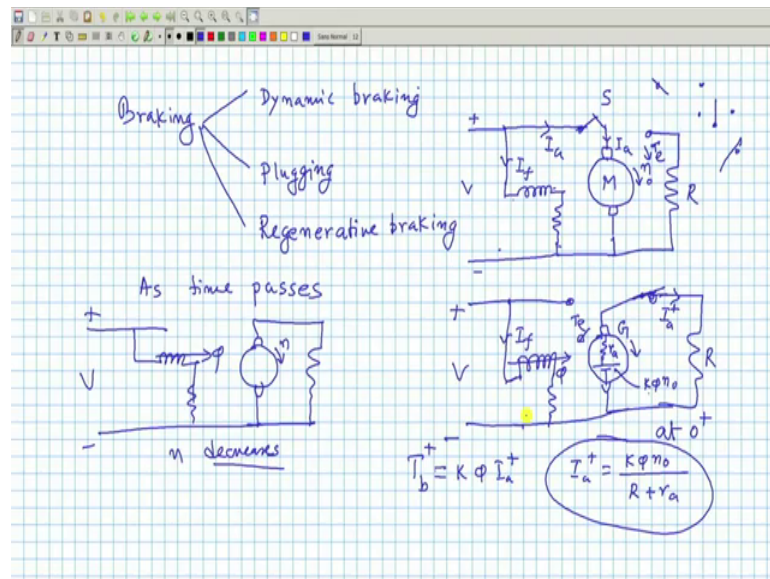 Sans Normal 12
Braking
Dynamic braking
Plugging
Regenerative braking
S
+
I_a
I_a
I_f
V
M
T_e
n_0
R
-
As time passes
+
V
φ
n
-
n decreases
+
I_f
V
φ
T_e
G
r_a
Kφn_0
I_a^+
R
-
at 0^+
T_b^+ = K φ I_a^+
I_a^+ = Kφn_0 / R + r_a